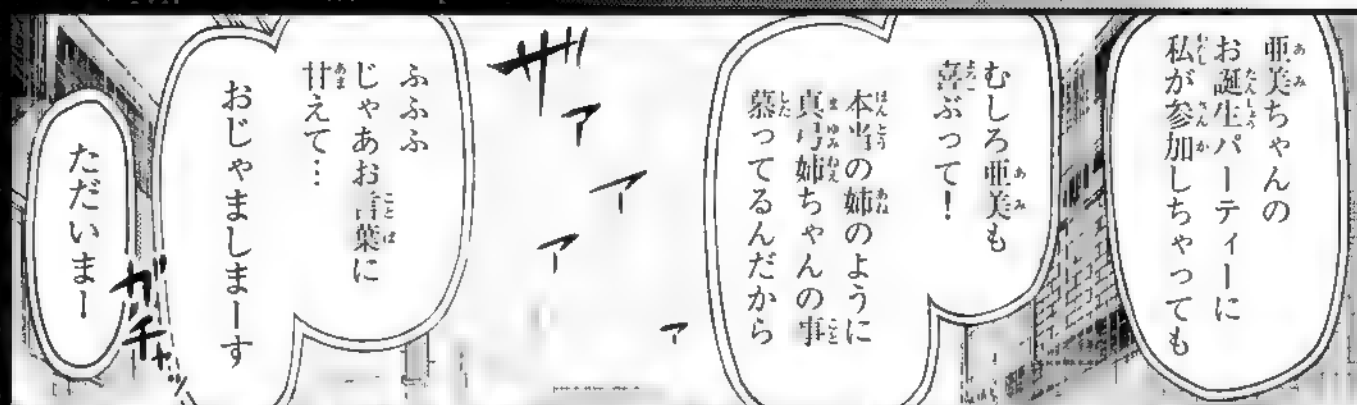 亜美ちゃんの
お誕生パーティーに
私が参加しちゃっても
むしろ亜美も
喜ぶって！
本当の姉のように
真弓姉ちゃんの事
慕ってるんだから
ザァァァァ
ふふふ
じゃあお言葉に
甘えて…
おじゃましまーす
ガチャッ
ただいまー